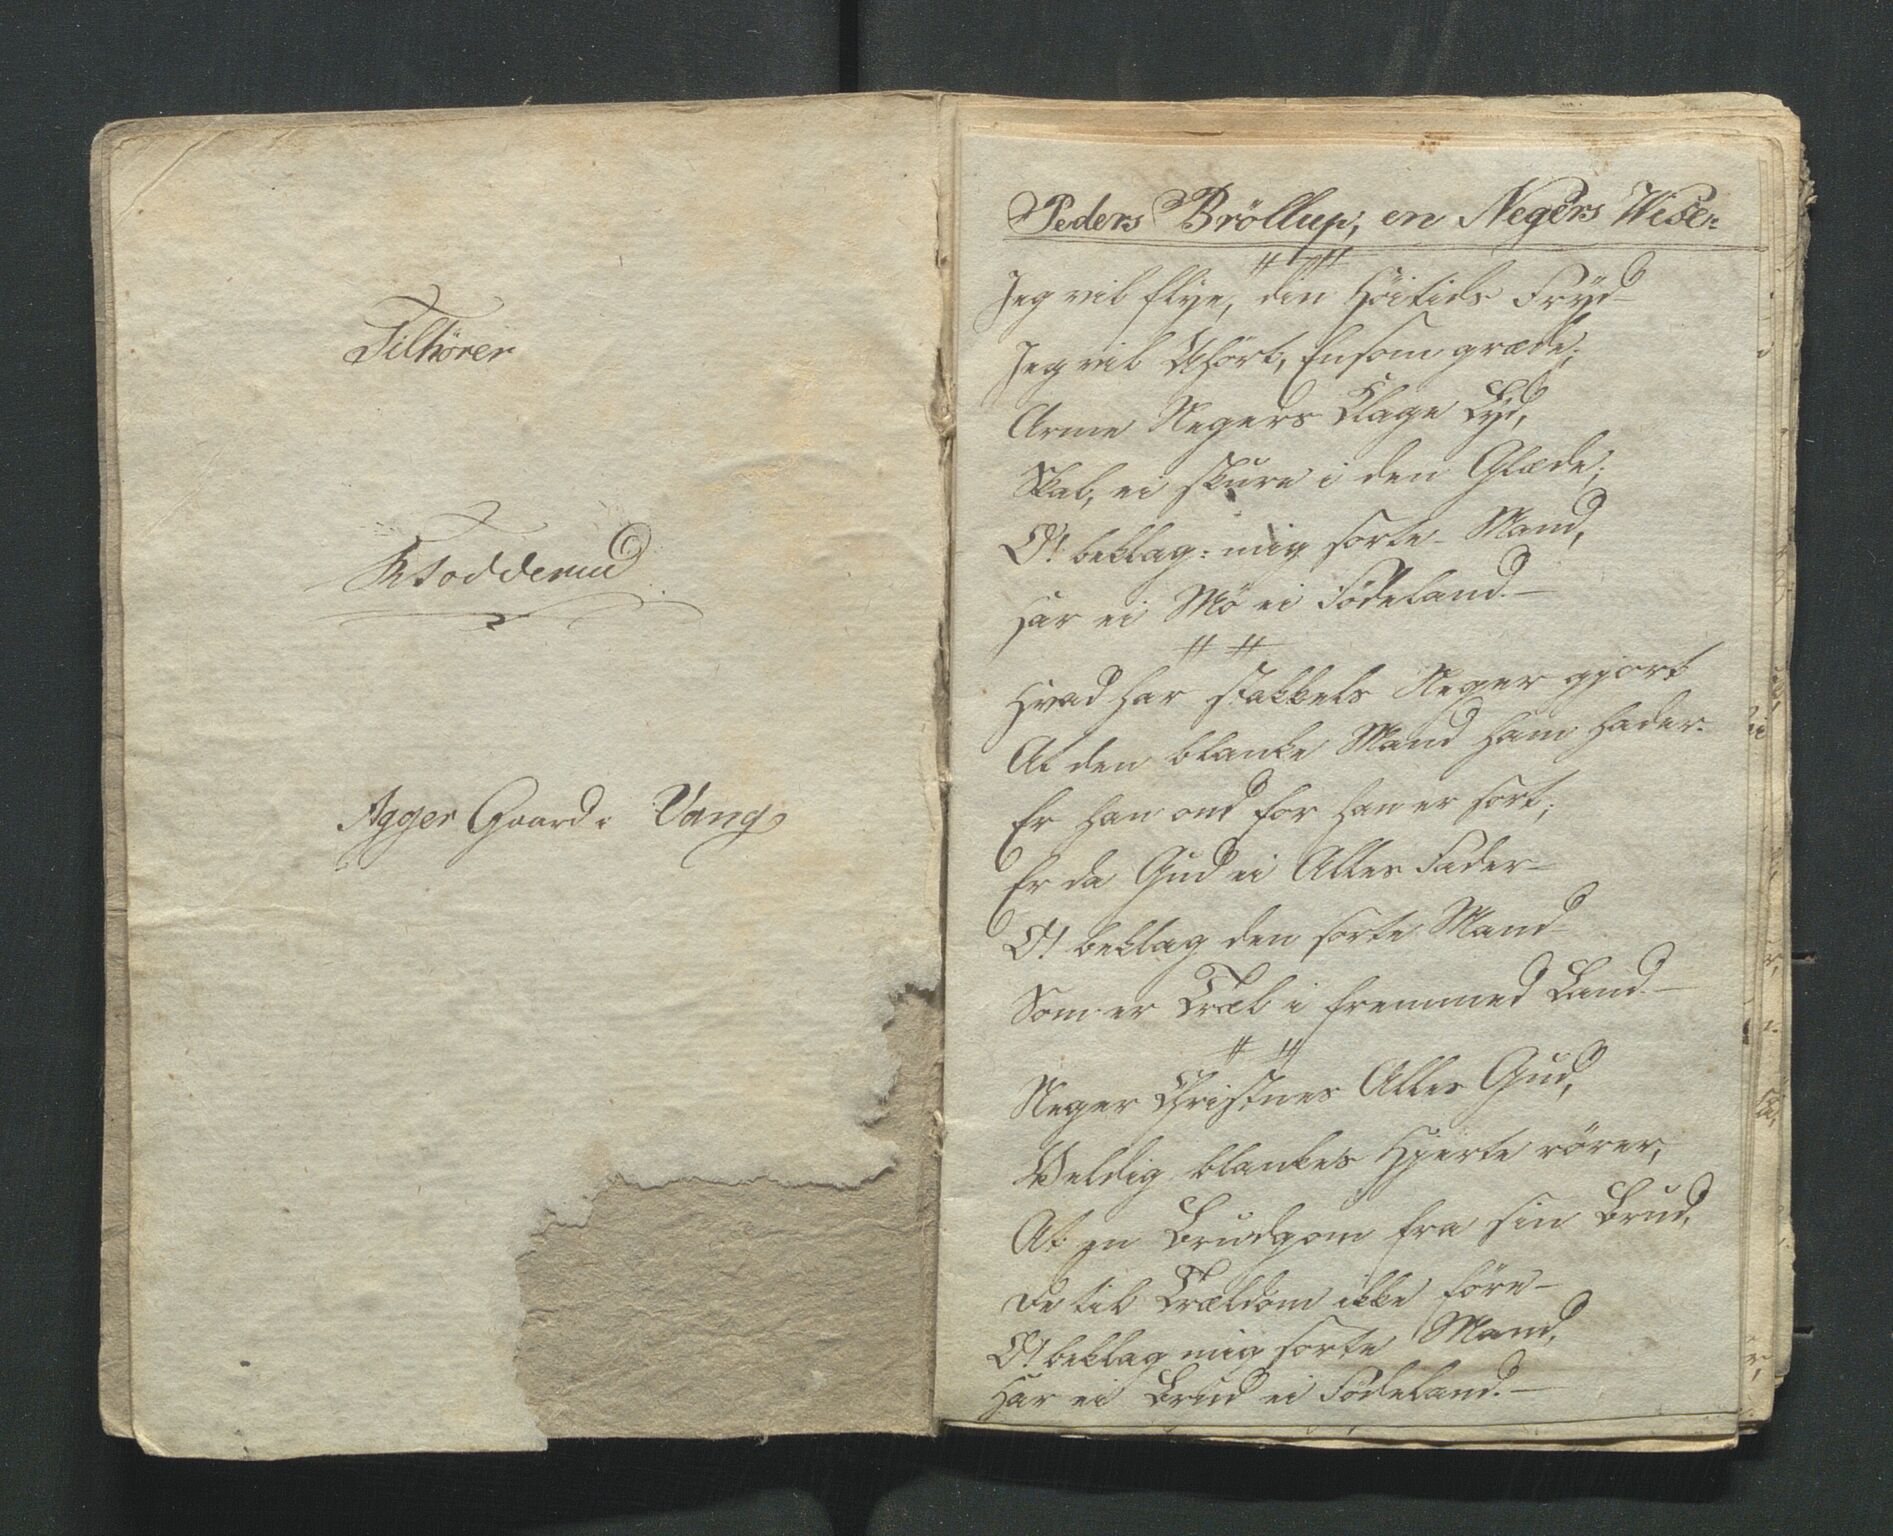 Tilhörer
KTodderud
Agger Gaard i Vang
Peders Bröllup, en Negers Wise
Jeg vil flye, den Höitids Fryd
Jeg vil Uhört, Ensom græde;
Arme Negers Klage Lyd,
Skal, ei skure i den Glæde;
O! beklag: mig sorte Mand,
Har ei Mö ei Födeland.—
Hvad har stakkels Neger gjort
At den blanke Mand ham hader.
Er han ond for han er sort;
Er da Gud ei Alles Fader—
O! beklag den sorte Mand—
Som er Træl i fremmed Land.—
Neger Christnes Alles Gud,
Veldig blankes Hjerte rörer,
At en Brudgom fra sin Brud,
De til Trældom ikke före—
O! beklag mig sorte Mand,
Har ei Brud ei Födeland.—